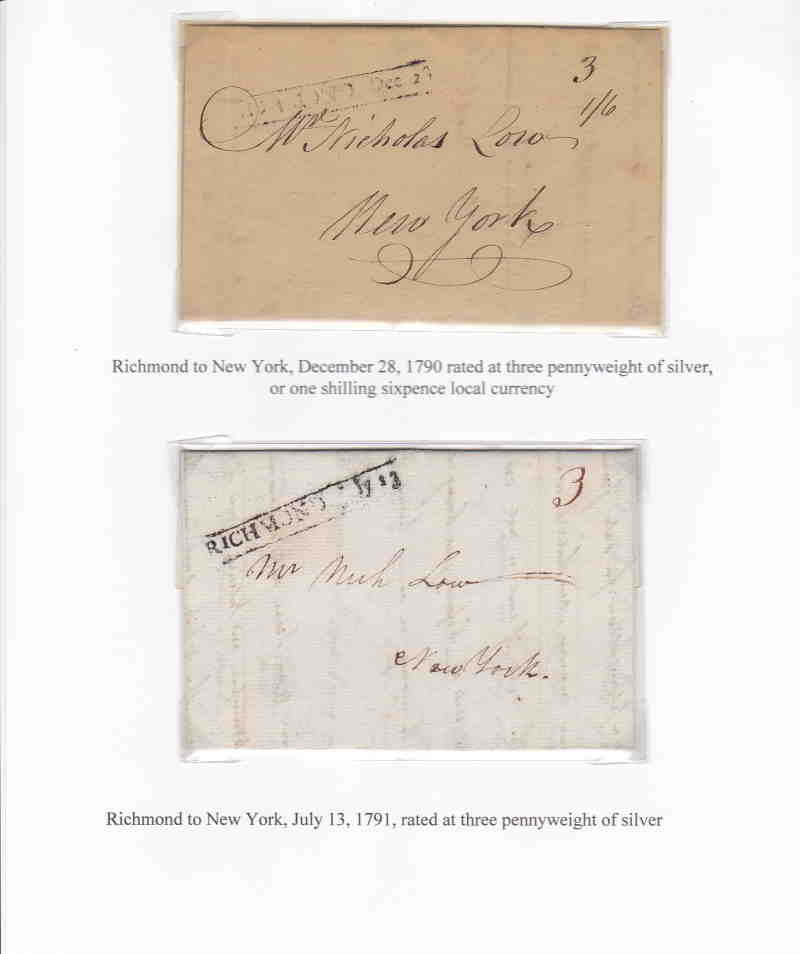 3
Dec 29
1/6
Mr Nicholas Low
New York
Richmond to New York, December 28, 1790 rated at three pennyweight of silver,
or one shilling sixpence local currency
RICHMOND 13
3
Mr Nich Low
New York.
Richmond to New York, July 13, 1791, rated at three pennyweight of silver